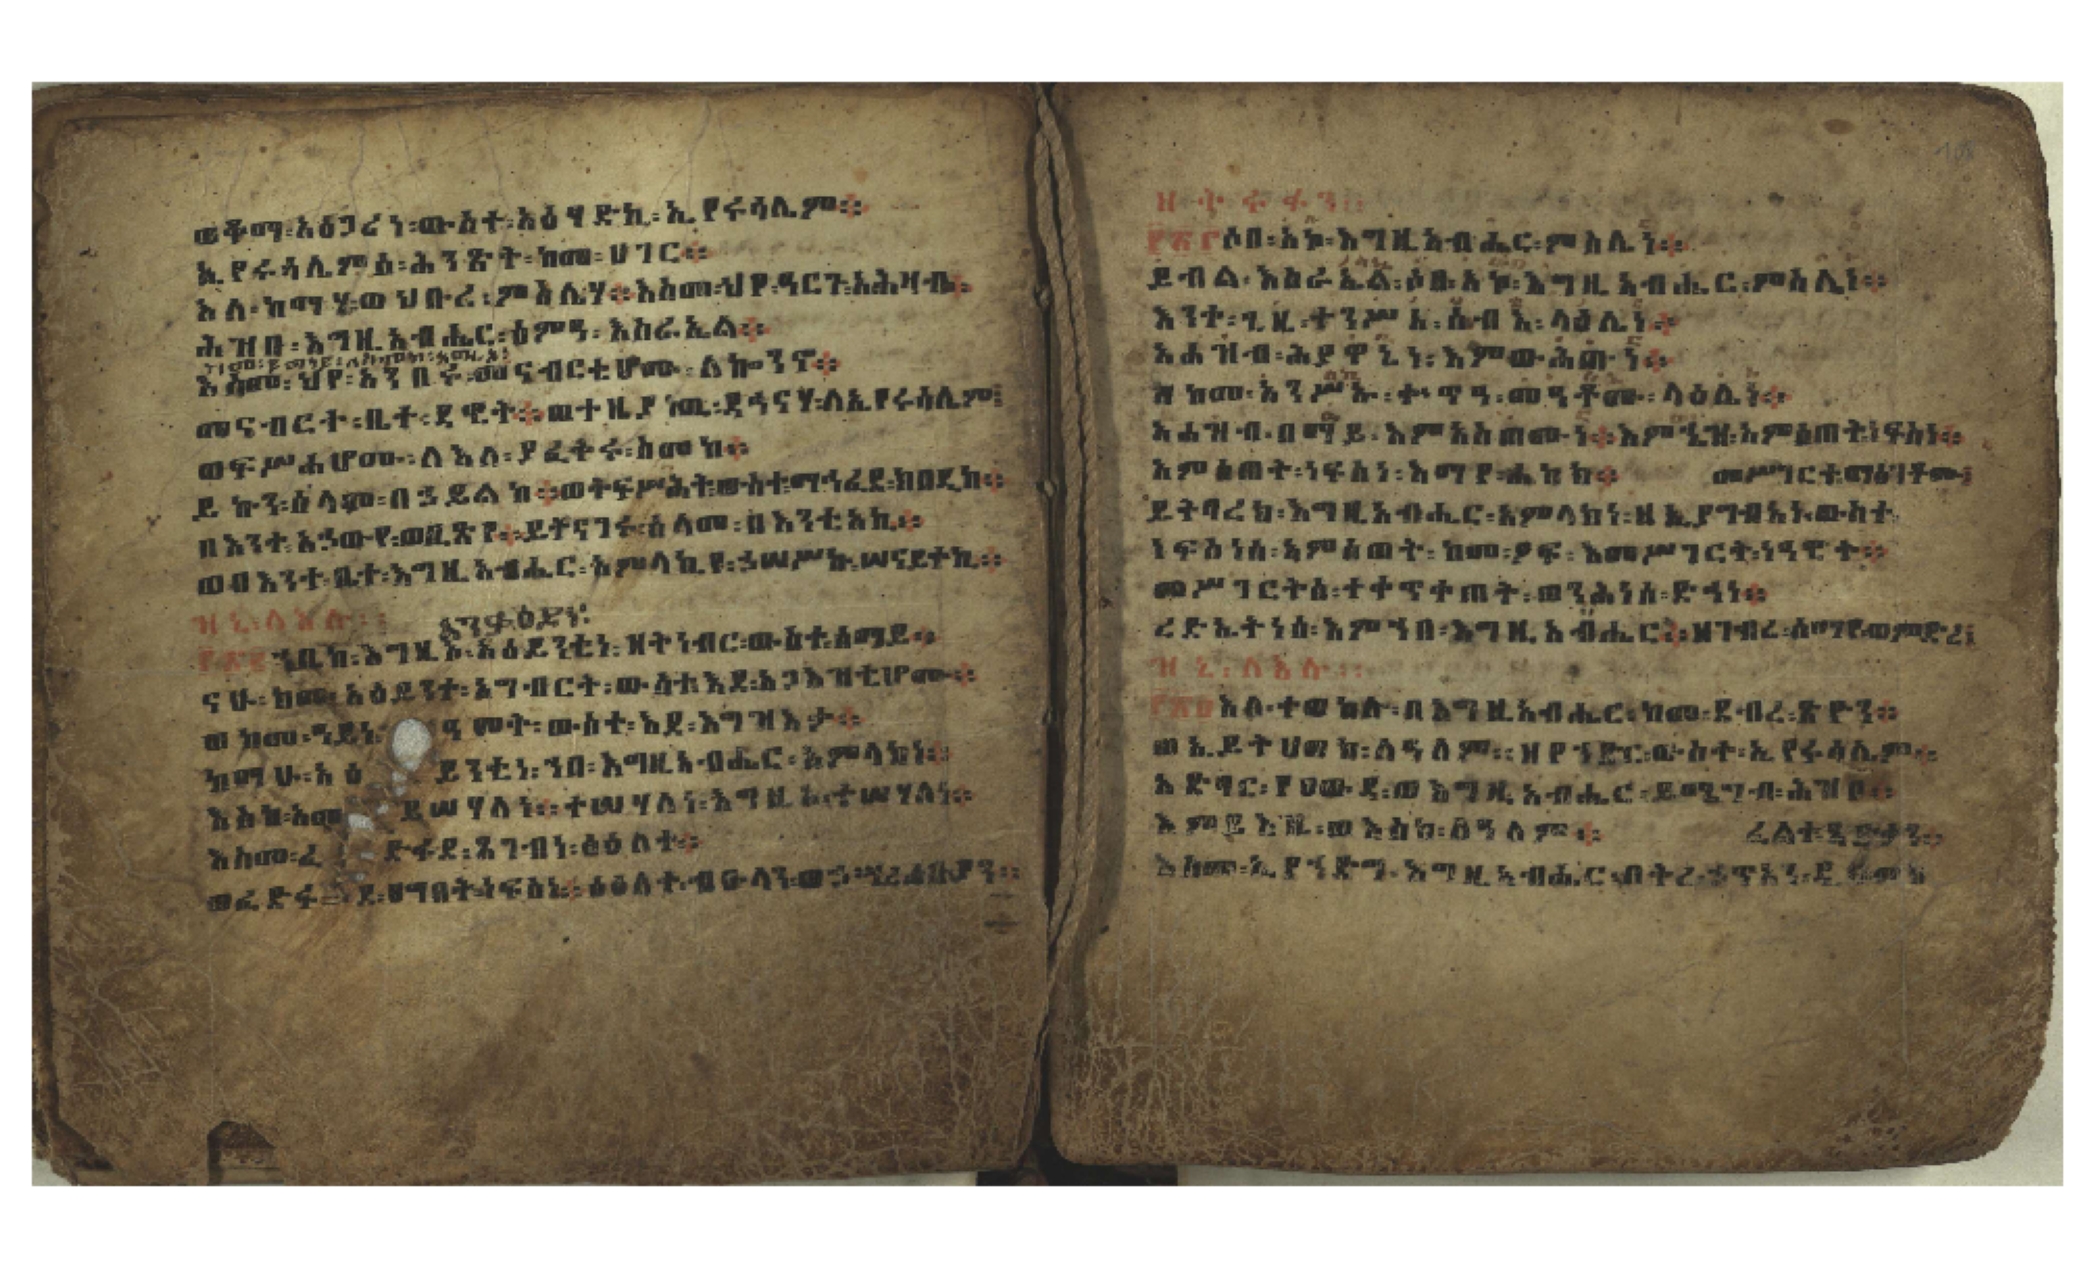 ወቆማ፡አዕጋሪነ፡ውስተ፡አዕፃድኪ፡ኢየሩሳሌም።
ኢየሩሳሌምሰ፡ሕንጽት፡ከመ፡ሀገር።
እለ፡ከማሃ፡ወኅቡረ፡ምስሌሃ።እስመ፡ህየ፡ዓርጉ፡አሕዛብ።
ሕዝቡ፡እግዚአብሔር፡ስምዓ፡እስራኤል።
እስመ፡ህየ፡አንበሩ፡መናብርቲሆሙ፡ለኰንኖ።
መናብርት፡ቤተ፡ዳዊት።ወተዜያነዉ፡ዳኅናሃ፡ለኢየሩሳሌም፤
ወፍሥሐሆሙ፡ለእለ፡ያፈቅሩ፡ስመከ።
ይኩን፡ሰላም፡በኃይልከ።ወትፍሥሕት፡ውስተ፡ማኅፈደ፡ክበዲከ።
በእንተ፡አኃውየ፡ወቢጽየ።ይትናገሩ፡ሰላመ፡በእንቲአኪ።
ወበእንተ፡ቤተ፡እግዚአብሔር፡አምላኪየ፡ኃሠሥኩ፡ሠናይተኪ።
ዝኒ፡ለእሉ።
ኀቤከ፡እግዚኦ፡አዕይንቲነ፡ዘትነብር፡ውስተ፡ሰማይ።
ናሁ፡ከመ፡አዕይንተ፡አግብርት፡ውስተ፡እደ፡አጋእዝቲሆሙ።
ወከመ፡ዓይነ፡ዓመት፡ውስተ፡እደ፡እግዝእታ።
ከማሁ፡አዕይንቲነ፡ኀበ፡እግዚአብሔር፡አምላክነ።
እስከ፡አመ፡ይሣሃለነ።ተሣሃለነ፡እግዚኦ፡ተሣሃለነ።
እስመ፡ፈድፋደ፡ጸገብነ፡ስዕለተ።
ወፈድፋደ፡ጸግበት፡ነፍስነ።
ዘትሩፋን።
ሶበ፡አኮ፡እግዚአብሔር፡ምስሌነ።
ይብል፡እስራኤል፡ሶበ፡አኮ፡እግዚአብሔር፡ምስሌነ።
እንተ፡ጊዜ፡ተንሥኡ፡ሰብእ፡ላዕሌነ።
አሐዝብ፡ሕያዋኒነ፡እምውሕጡነ።
ዘከመ፡አንሥኡ፡ተጥዓ፡መዓቶሙ፡ላዕሌነ።
አሐዝብ፡በማይ፡እምአስጠሙነ።እምኄዝ፡አምሰጠት፡ነፍስነ።
አምሰጠት፡ነፍስነ፡እማየ፡ሐከክ።
ይትባረክ፡እግዚአብሔር፡አምላክነ፡ዘኢያግብአነ፡ውስተ፡
መሥገርተ፡ማዕገቶሙ፤
ነፍስነሰ፡አምሰጠት፡ከመ፡ዖፍ፡እመሥገርት፡ነዓዊት።
መሥገርትሰ፡ተቀጥቀጠት፡ወንሕነሰ፡ድኅነ።
ረድኤትነሰ፡እምኀበ፡እግዚአብሔር፡ዘገብረ፡ሰማየ፡ወምድረ፤
ዝኒ፡ለእሉ።
እለ፡ተወከሉ፡በእግዚአብሔር፡ከመ፡ደብረ፡ጽዮን።
ወኢይትሀወክ፡ለዓለም።ዘየኀድር፡ውስተ፡ኢየሩሳሌም።
አድባር፡የሀውዳ፡ወእግዚአብሔር፡ይሜግብ፡ሕዝቦ።
እምይእዜ፡ወእስከ፡ለዓለም።
እስመ፡ኢየኀድግ፡እግዚአብሔር፡በትረ፡ኃጥአን፡ዲበ፡